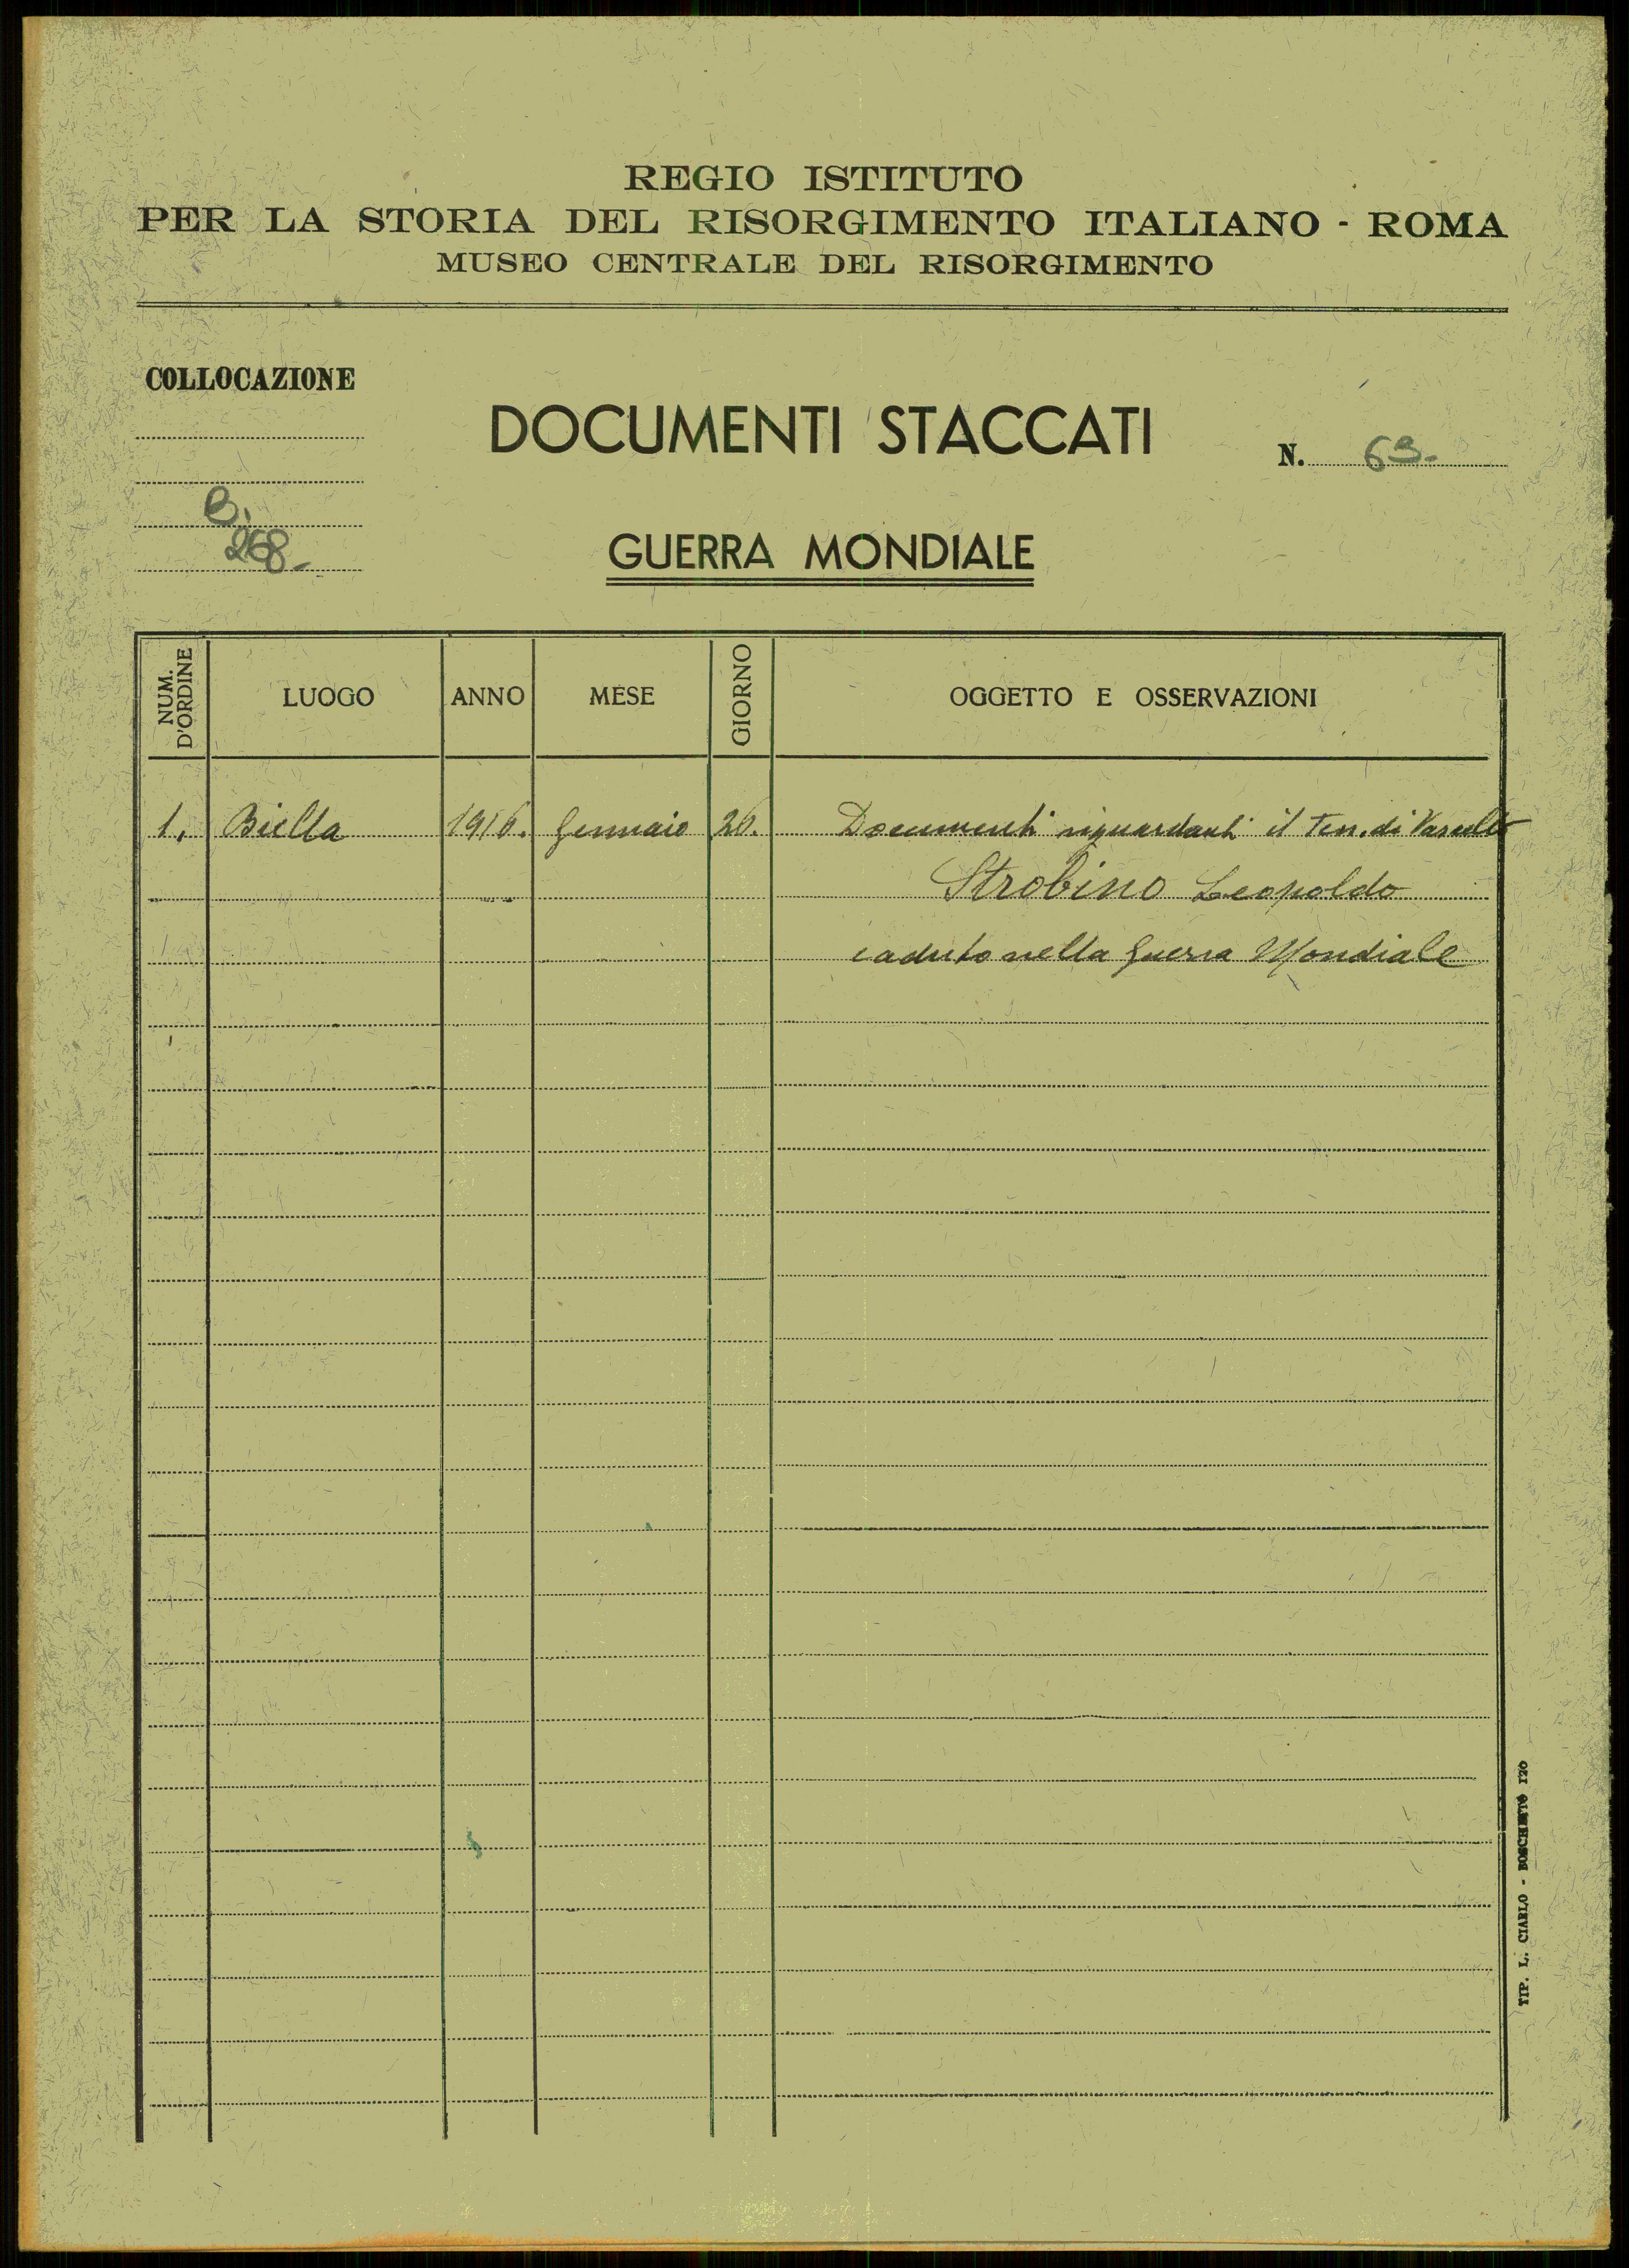 REGIO ISTITUTO
PER LA STORIA DEL RISORGIMENTO ITALIANO - ROMA
MUSEO CENTRALE DEL RISORGIMENTO
COLLOCAZIONE
B.
268-
DOCUMENTI STACCATI
N. 63-
GUERRA MONDIALE
NUM. D'ORDINE LUOGO ANNO MESE GIORNO OGGETTO E OSSERVAZIONI
1. Biella 1916. Gennaio 26. Documenti riguardanti il Ten. di Vascello
Strobino Leopoldo
caduto nella Guerra Mondiale
TIP. L. CIARLO - BOSCHETTO 120